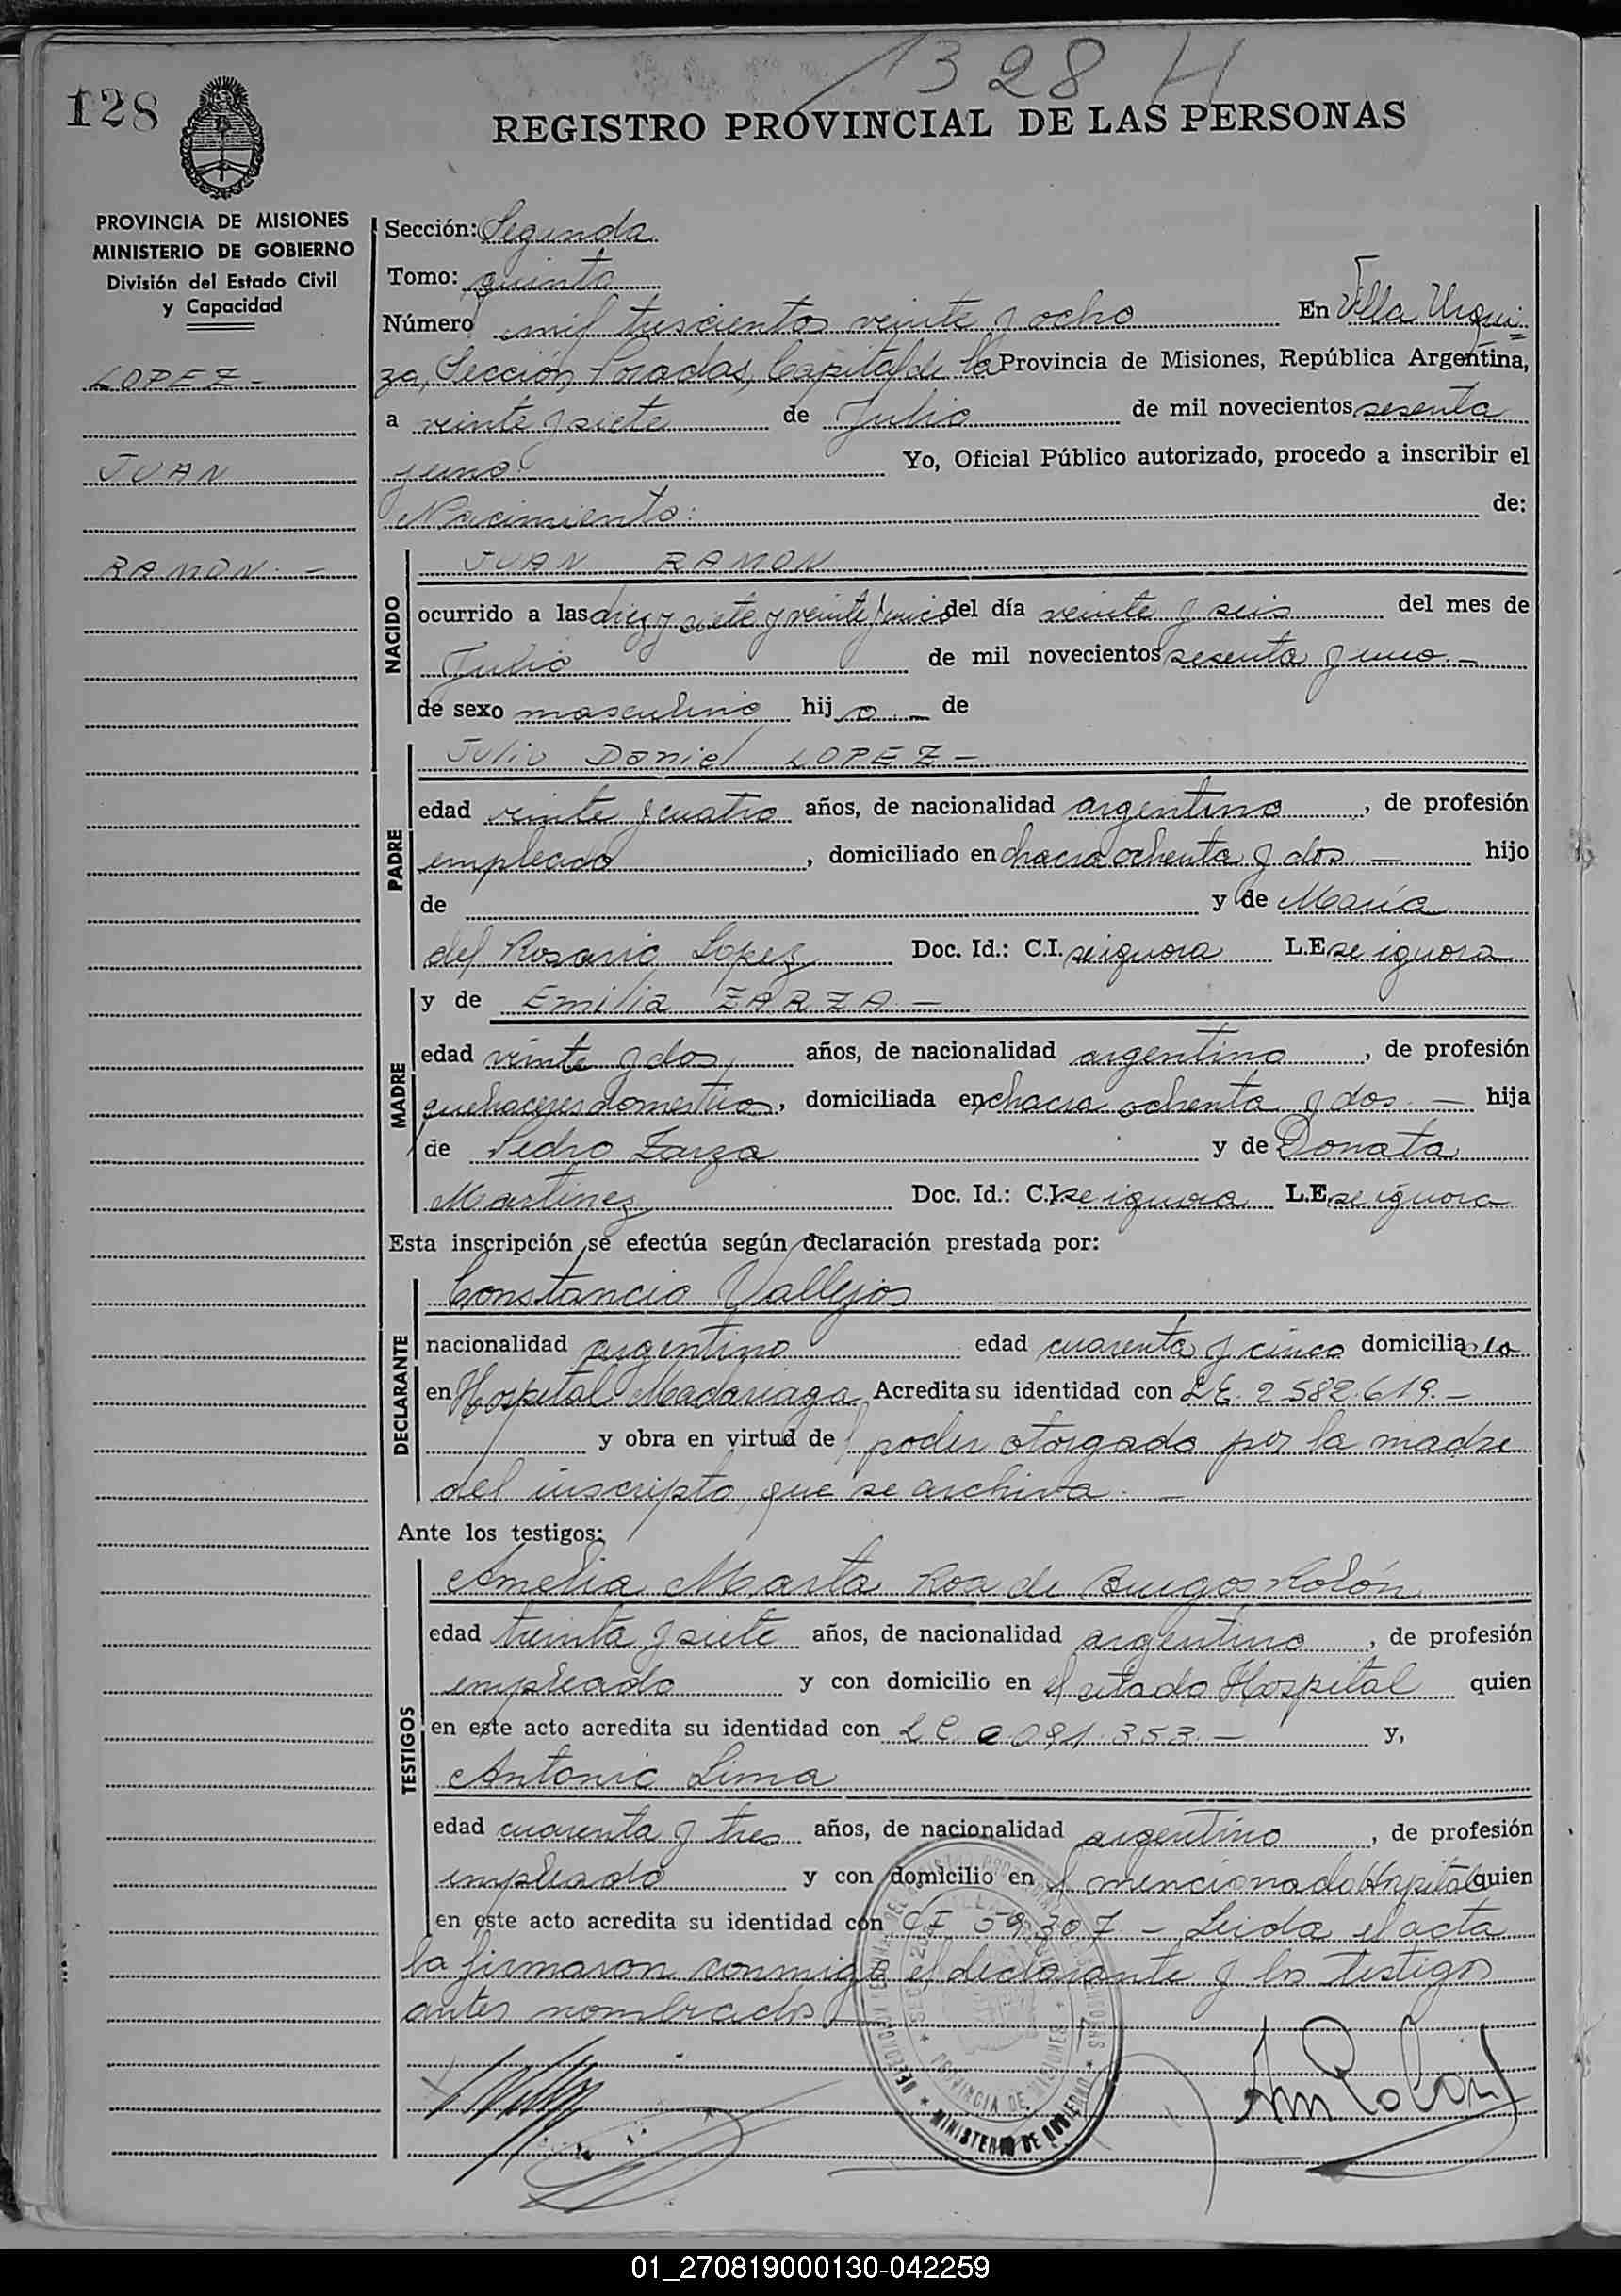 1328 H
128
REGISTRO PROVINCIAL DE LAS PERSONAS
PROVINCIA DE MISIONES
MINISTERIO DE GOBIERNO
División del Estado Civil
y Capacidad
LOPEZ -
JUAN
RAMON. -
Sección: Segunda
Tomo: quinto
Número mil trescientos veinte y ocho En Villa Urqui=
za, Sección Posadas, Capital de la Provincia de Misiones, República Argentina,
a veinte y siete de Julio de mil novecientos sesenta
y uno. Yo, Oficial Público autorizado, procedo a inscribir el
Nacimiento: de:
NACIDO
JUAN RAMON
ocurrido a las diez y siete y veinte y cinco del día veinte y seis del mes de
Julio de mil novecientos sesenta y uno. -
de sexo masculino hijo - de
PADRE
Julio Daniel LOPEZ -
edad veinte y cuatro años, de nacionalidad argentino, de profesión
empleado, domiciliado en chacra ochenta y dos - hijo
de y de María
del Rosario Lopez Doc. Id.: C.I. se ignora L.E. se ignora
MADRE
y de Emilia ZARZA -
edad veinte y dos años, de nacionalidad argentina, de profesión
quehaceres domesticos, domiciliada en chacra ochenta y dos. - hija
de Pedro Zarza y de Donata
Martinez Doc. Id.: C.I. se ignora L.E. se ignora
Esta inscripción se efectúa según declaración prestada por:
DECLARANTE
Constancio Vallejos
nacionalidad argentino edad cuarenta y cinco domicilia
en Hospital Madariaga Acredita su identidad con L.E. 2.582.619. -
y obra en virtud de poder otorgado por la madre
del inscripto, que se archiva. -
Ante los testigos:
TESTIGOS
Amelia Marta Roa de Burgos Rolón
edad treinta y siete años, de nacionalidad argentina, de profesión
empleada y con domicilio en el citado Hospital quien
en este acto acredita su identidad con L.C. 0.091.353. - y,
Antonio Lima
edad cuarenta y tres años, de nacionalidad argentino, de profesión
empleado y con domicilio en el mencionado Hospital quien
en este acto acredita su identidad con C.I. 59.307 - Leida el acta
la firmaron conmigo el declarante y los testigos
antes nombrados
PROVINCIA DE MISIONES
MINISTERIO DE GOBIERNO
01_270819000130-042259